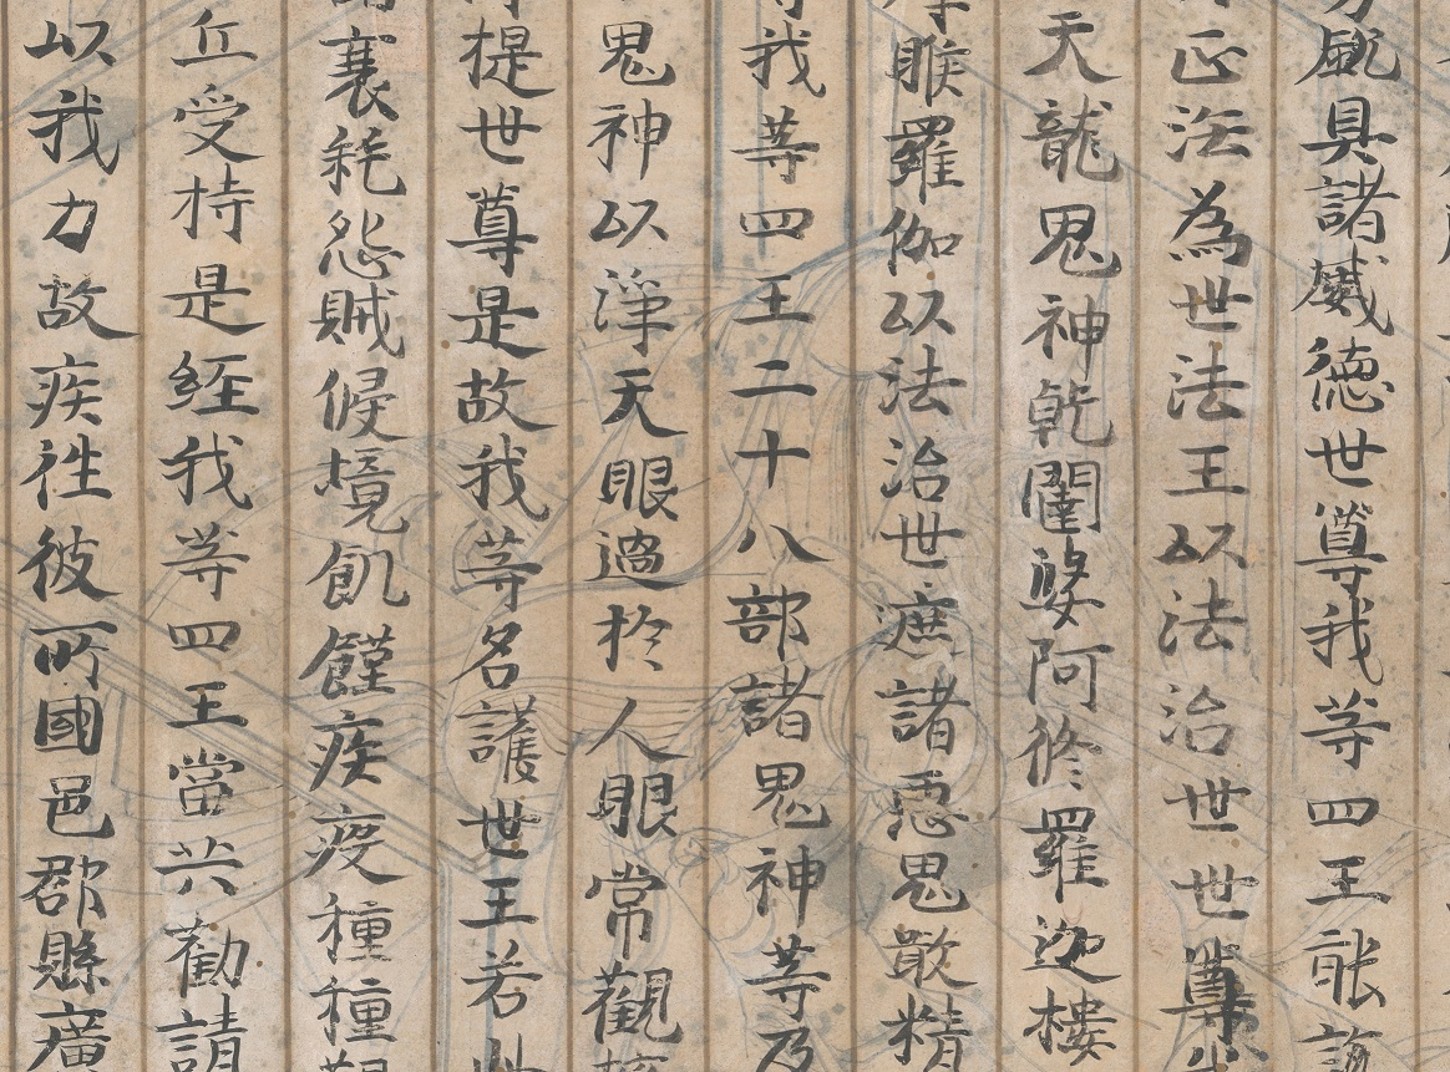 威具諸威德世尊我等四王能
正法為世法王以法治世世尊
天龍鬼神乹闥婆阿脩羅迦樓
睺羅伽以法治世遮諸惡鬼噉精
我等四王二十八部諸鬼神等乃
鬼神以淨天眼過於人眼常觀
提世尊是故我等名護世王若
衰秏怨賊侵境飢饉疾疫種種
丘受持是經我等四王當共勸請
以我力故疾往彼所國邑郡縣廣